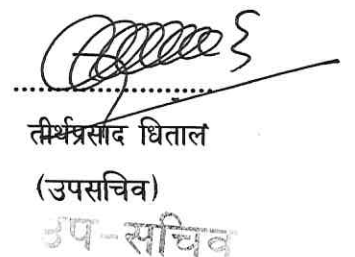 तीर्थप्रसाद धिताल
(उपसचिव)
उप-सचिव